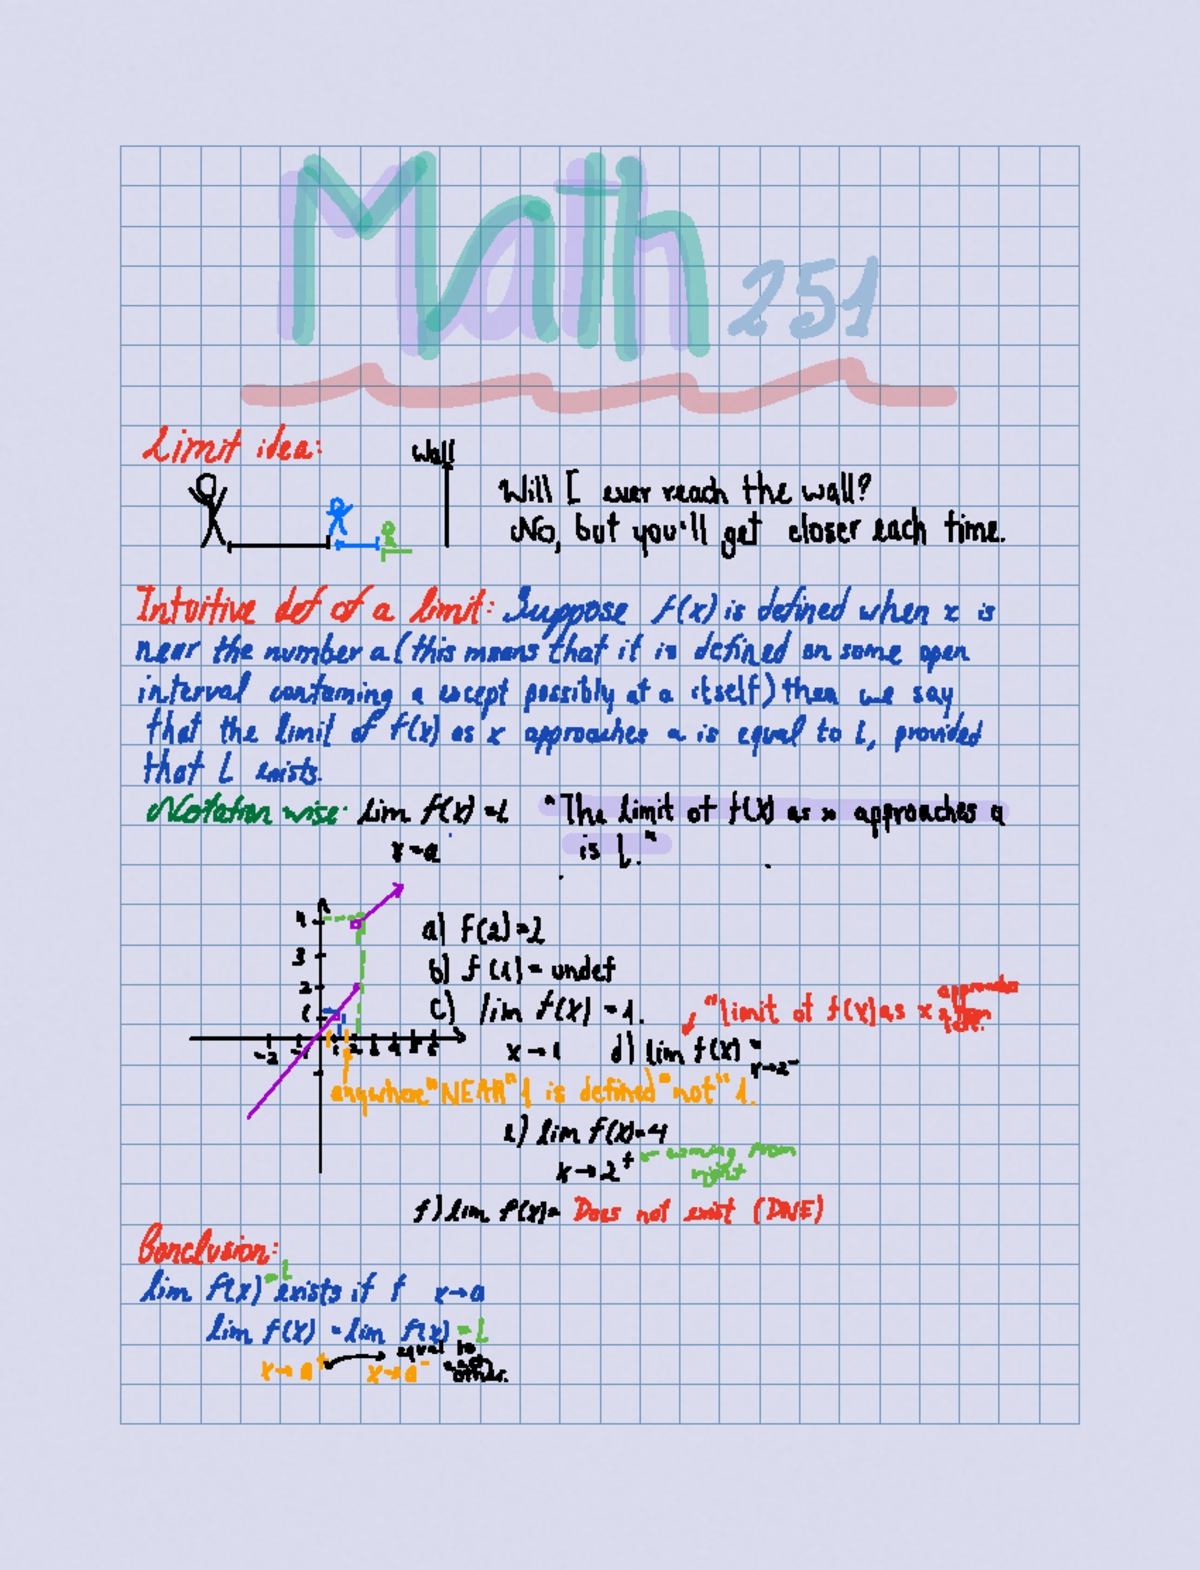 Math 251
Limit idea:
Wall
Will I ever reach the wall?
No, but you'll get closer each time.
Intuitive def of a limit: Suppose f(x) is defined when x is
near the number a (this means that it is defined on some open
interval containing a except possibly at a itself) then we say
that the limit of f(x) as x approaches a is equal to L, provided
that L exists.
Notation wise: lim f(x) = L "The limit of f(x) as x approaches a
x→a is L."
4
3
2
1
-2 -1 1 2 3 4 5 6
a) f(2)=2
b) f(1)= undef
c) lim f(x) = 1. "limit of f(x) as x approaches
x→1 d) lim f(x) =
x→2⁻
left."
anywhere "NEAR" 1 is defined "not" 1.
e) lim f(x)=4
x→2⁺ ← coming from
right
f) lim f(x)= Does not exist (DNE)
Conclusion:
lim f(x) = L exists if f x→a
lim f(x) = lim f(x) = L
x→a⁺ x→a⁻ equal to
each
other.